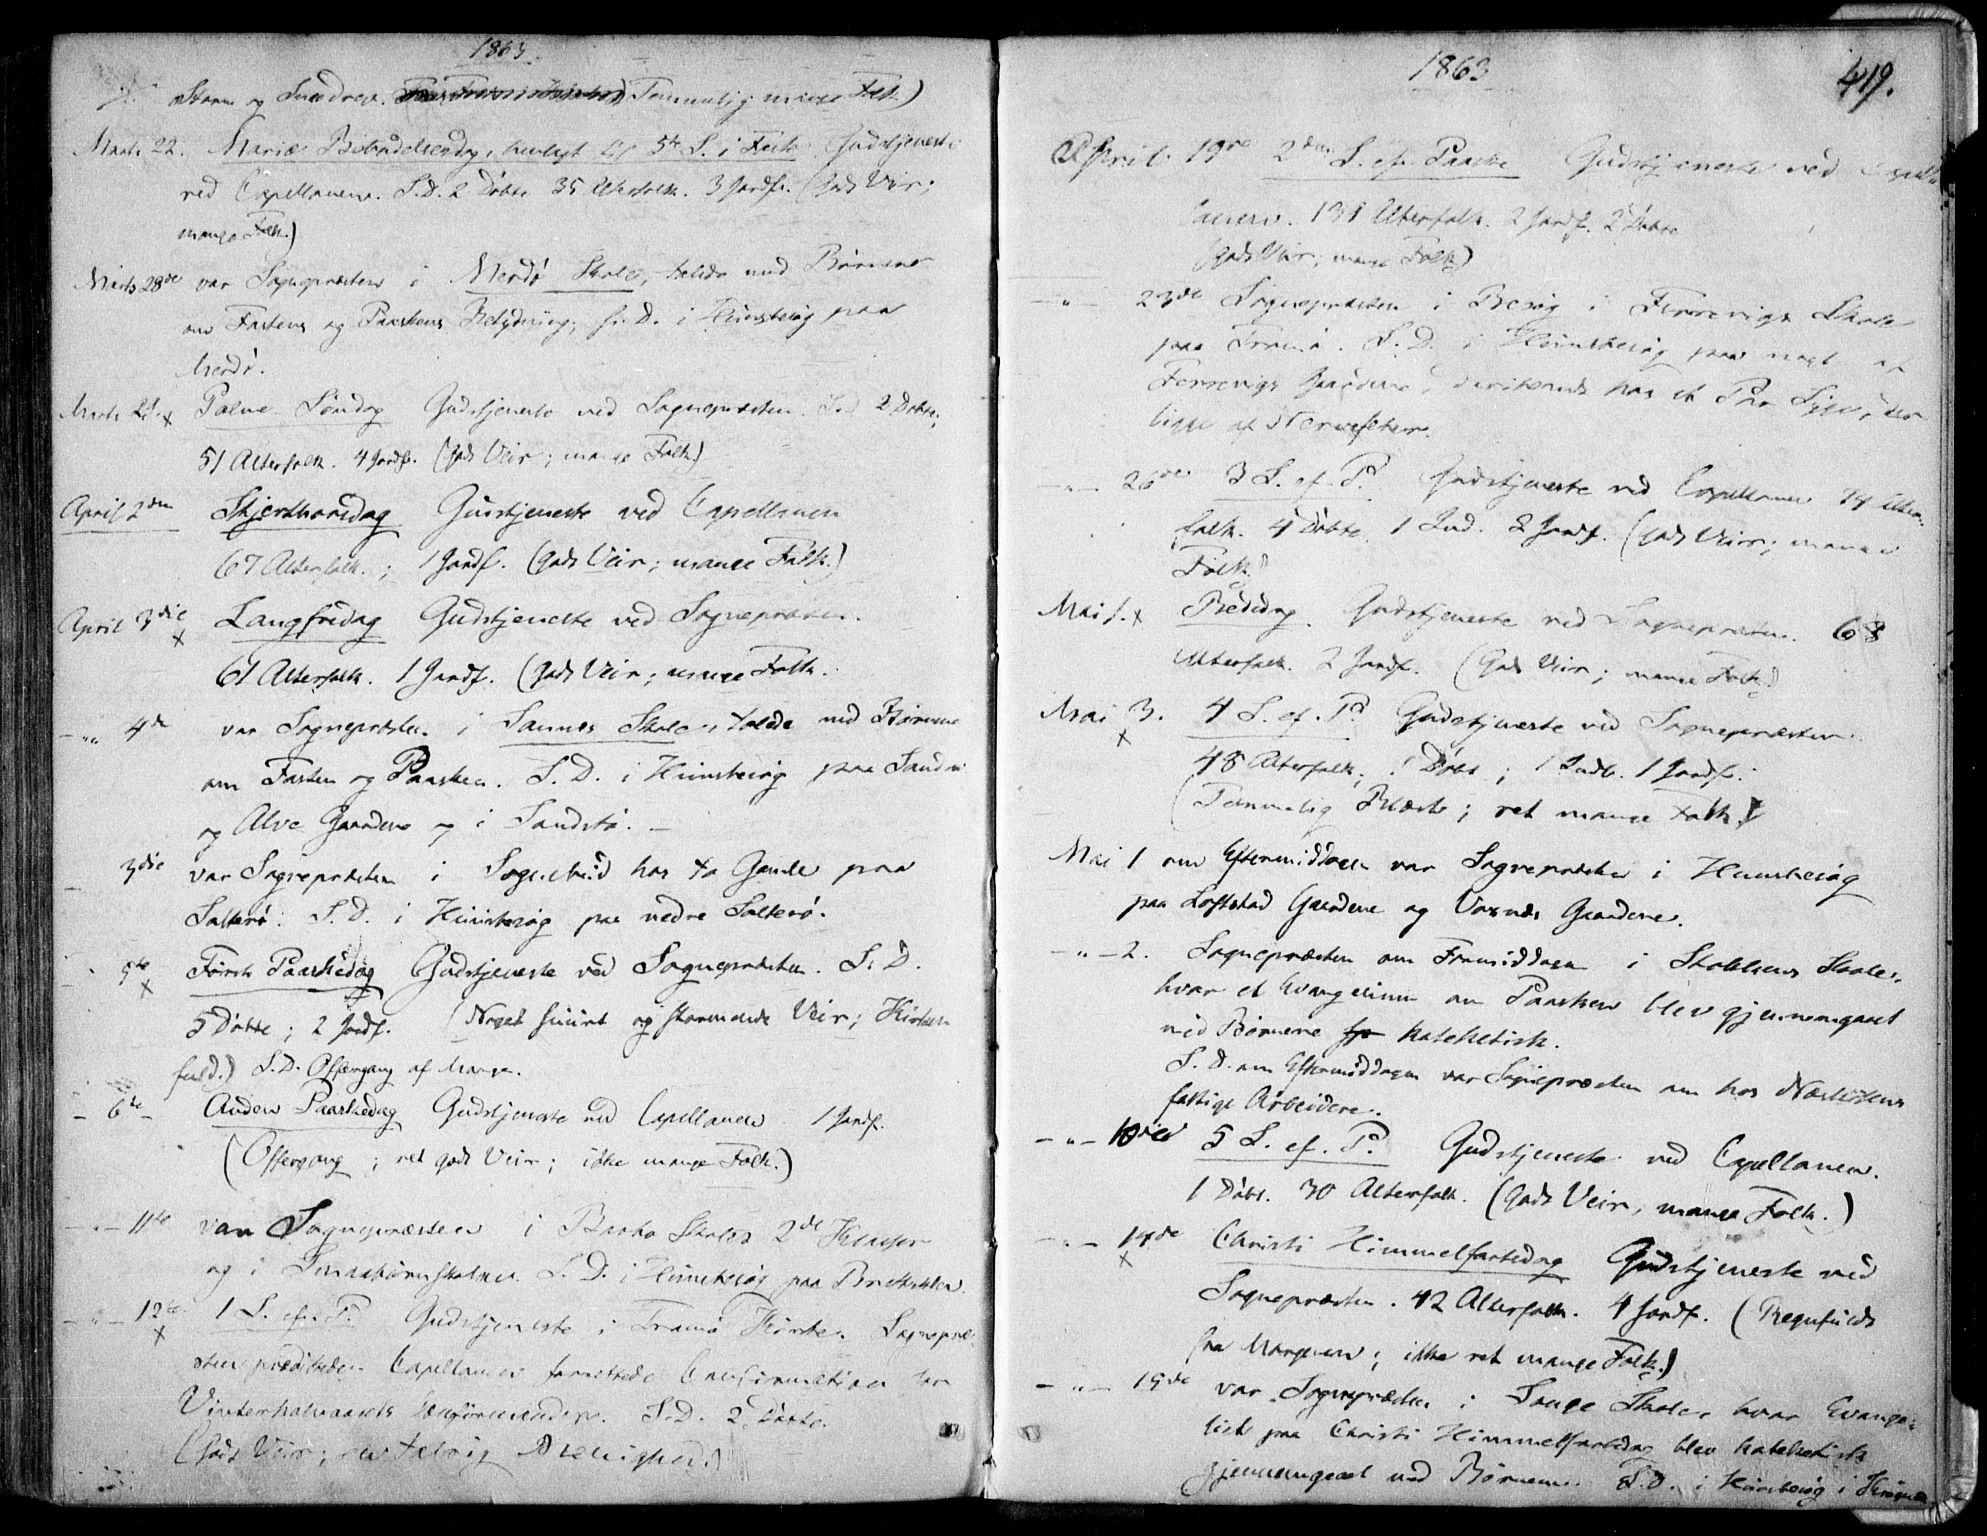 1863.
Storm og Snedrev. Temmelig mange Folk.)
Marts 22. Mariæ Bebudelsesdag, henlagt til 5te S. i Faste Gudstjeneste
ved Capellanen. S.D. 2 Døbte 35 Alterfolk. 3 Jordf. (Godt Veir;
mange Folk.)
Marts 28de var Sognepræsten i Merdø Skole, talede med Børnene
om Fastens og Paaskens Betydning; S.D. i Huusbesøg paa
Merdø.
Marts 29. x Palme Søndag Gudstjeneste ved Sognepræsten. S.D. 2 Døbte,
51 Alterfolk. 4 Jordf. (Godt Veir; mange Folk.)
April 2den Skjærthorsdag Gudstjeneste ved Capellanen
67 Alterfolk. ; 1 Jordf. (Godt Veir; mange Folk.)
April 3die x Langfredag Gudstjeneste ved Sognepræsten.
61 Alterfolk. 1 Jordf. (Godt Veir; mange Folk.
- „ 4de var Sognepræsten i Sannes Skole, talede med Børnene
om Fasten og Paasken. S.D. i Huusbesøg paa Sandn
og Alve Gaardene og i Sandstø. -
- 3die var Sognepræsten i Sognebud hos to Gamle paa
Salterø. S.D. i Huusbesøg paa nedre Salterø.
5te x Første Paaskedag Gudstjeneste ved Sognepræsten. S.D.
5 Døbte ; 2 Jordf. (Noget suurt og stormende Veir; Kirken
fuld.) S.D. Offergang af Mange.
- 6te - Anden Paaskedag Gudstjeneste ved Capellanen 1 Jordf.
(Offergang ; ret godt Veir; ikke mange Folk.)
- „ - 11te var Sognepræsten i Barbo Skoles 2de Klasser
og i Smaabørnskolen. S.D. i Huusbesøg paa
- „ - 12te x 1 S. ef. P. Gudstjeneste i Tromø Kirke. Sognepræ-
sten prædikede. Capellanen forrettede Confirmation for
Vinterhalvaarets Confirmender. S.D. 2 Døbte.
(Godt Veir; en talrig Menighed.)
1863
419.
April 19de 2den S. ef. Paaske Gudstjeneste ved Capel-
lanen. 131 Alterfolk. 2 Jordf. 2 Døbte
(Godt Veir; mange Folk)
- „ - 23de Sognepræsten i Besøg i Færvigs Skole
paa Tromø. S.D. i Huusbesøg paa nogle af
Færvigs Gaardene, deriblandt hos et Par Syge, der
ligge af Nervefeber.
- „ - 26de 3 S. ef. P. Gudstjeneste ved Capellanen 74 Alter-
folk. 4 Døbte. 1 Ind. 2 Jordf. (Godt Veir; mange
Folk.)
Mai 1. x Bededag. Gudstjeneste ved Sognepræsten. 68
Alterfolk. 2 Jordf. (Godt Veir; mange Folk.)
Mai 3. x 4 S. ef. P. Gudstjeneste ved Sognepræsten.
48 Alterfolk; 1 Døbt ; 1 Indl. 1 Jordf.
(Temmelig Blæst ; ret mange Folk.)
Mai 1 om Eftermiddagen var Sognepræsten i Huusbesøg
paa Loftstad Gaardene og Vaxnæs Gaardene.
- „ - 2. Sognepræsten om Formiddagen i Skole,
hvor et Evangelium om Paasken blev gjennemgaaet
med Børnene katekhetisk.
S.D. om Eftermiddagen var Sognepræsten om hos
fattige Arbeidere.
- „ - 10de 5 S. ef. P. Gudstjeneste ved Capellanen.
1 Døbt. 30 Alterfolk. (Godt Veir, mange Folk.)
- „ - 14de x Christi Himmelfartsdag Gudstjeneste ved
Sognepræsten. 42 Alterfolk. 4 Jordf. (Regnfuldt
fra Morgenen; ikke ret mange Folk.)
- „ - 15de var Sognepræsten i Songe Skole, hvor Evange-
liet paa Christi Himmelfartsdag blev katekhetisk
gjennemgaaet med Børnene. S.D. i Huusbesøg i